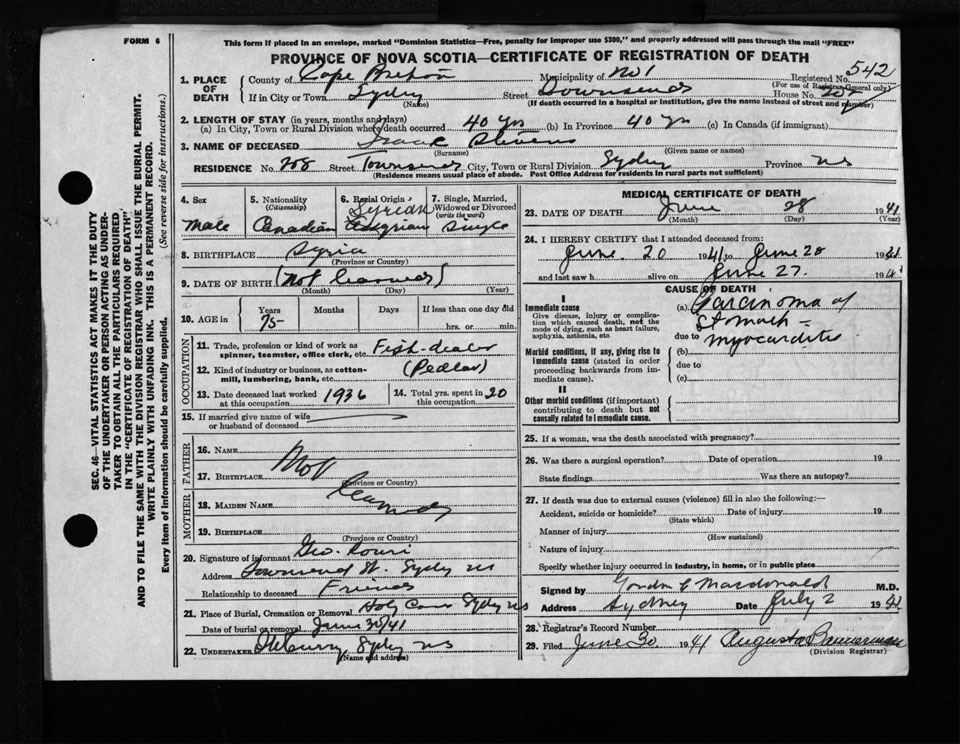 FORM 6
This form if placed in an envelope, marked "Dominion Statistics—Free, penalty for improper use $300," and properly addressed will pass through the mail "FREE"
PROVINCE OF NOVA SCOTIA—CERTIFICATE OF REGISTRATION OF DEATH
1. PLACE OF DEATH
County of Cape Breton Municipality of No 1 Registered No. 542
(For use of Registrar General only)
If in City or Town Sydney Street Townsend House No.
(Name) (If death occurred in a hospital or institution, give the name instead of street and number)
2. LENGTH OF STAY (in years, months and days)
(a) In City, Town or Rural Division where death occurred 40 yrs (b) In Province 40 yrs (c) In Canada (if immigrant)
3. NAME OF DECEASED Isaac Stevens
(Surname) (Given name or names)
RESIDENCE No. 208 Street Townsend City, Town or Rural Division Sydney Province NS
(Residence means usual place of abode. Post Office Address for residents in rural parts not sufficient)
4. Sex Male
5. Nationality (Citizenship) Canadian
6. Racial Origin Syrian
7. Single, Married, Widowed or Divorced (write the word) Single
8. BIRTHPLACE Syria
(Province or Country)
9. DATE OF BIRTH (Not learned)
(Month) (Day) (Year)
10. AGE in Years 75 Months Days If less than one day old
hrs. or min.
OCCUPATION
11. Trade, profession or kind of work as spinner, teamster, office clerk, etc. Fish-dealer
12. Kind of industry or business, as cotton-mill, lumbering, bank, etc. (Pedlar)
13. Date deceased last worked at this occupation 1936
14. Total yrs. spent in this occupation 20
15. If married give name of wife or husband of deceased
FATHER
16. NAME Not
17. BIRTHPLACE
(Province or Country)
MOTHER
18. MAIDEN NAME
19. BIRTHPLACE
(Province or Country)
20. Signature of informant Geo.
Address Townsend St. Sydney NS
Relationship to deceased Friend
21. Place of Burial, Cremation or Removal Holy Cross Sydney NS
Date of burial or removal June 30/41
22. UNDERTAKER Sydney NS
(Name and address)
MEDICAL CERTIFICATE OF DEATH
23. DATE OF DEATH June 28 1941
(Month) (Day) (Year)
24. I HEREBY CERTIFY that I attended deceased from:
June 20 1941 to June 28 1941
and last saw h alive on June 27 1941
CAUSE OF DEATH
I
Immediate cause
Give disease, injury or complication which caused death, not the mode of dying, such as heart failure, asphyxia, asthenia, etc.
(a) Carcinoma of
stomach –
due to myocarditis
Morbid conditions, if any, giving rise to immediate cause (stated in order proceeding backwards from immediate cause).
(b)
due to
(c)
II
Other morbid conditions (if important) contributing to death but not causally related to immediate cause.
25. If a woman, was the death associated with pregnancy?
26. Was there a surgical operation? Date of operation 19
State findings Was there an autopsy?
27. If death was due to external causes (violence) fill in also the following:—
Accident, suicide or homicide? Date of injury 19
(State which)
Manner of injury
(How sustained)
Nature of injury
Specify whether injury occurred in industry, in home, or in public place
Signed by Gordon C Macdonald M.D.
Address Sydney Date July 2 1941
28. Registrar's Record Number
29. Filed June 30 1941 Augusta
(Division Registrar)
SEC. 46—VITAL STATISTICS ACT MAKES IT THE DUTY
OF THE UNDERTAKER OR PERSON ACTING AS UNDER-
TAKER TO OBTAIN ALL THE PARTICULARS REQUIRED
IN THE "CERTIFICATE OF REGISTRATION OF DEATH"
AND TO FILE THE SAME WITH THE DIVISION REGISTRAR WHO SHALL ISSUE THE BURIAL PERMIT.
WRITE PLAINLY WITH UNFADING INK. THIS IS A PERMANENT RECORD.
Every item of information should be carefully supplied. (See reverse side for instructions.)